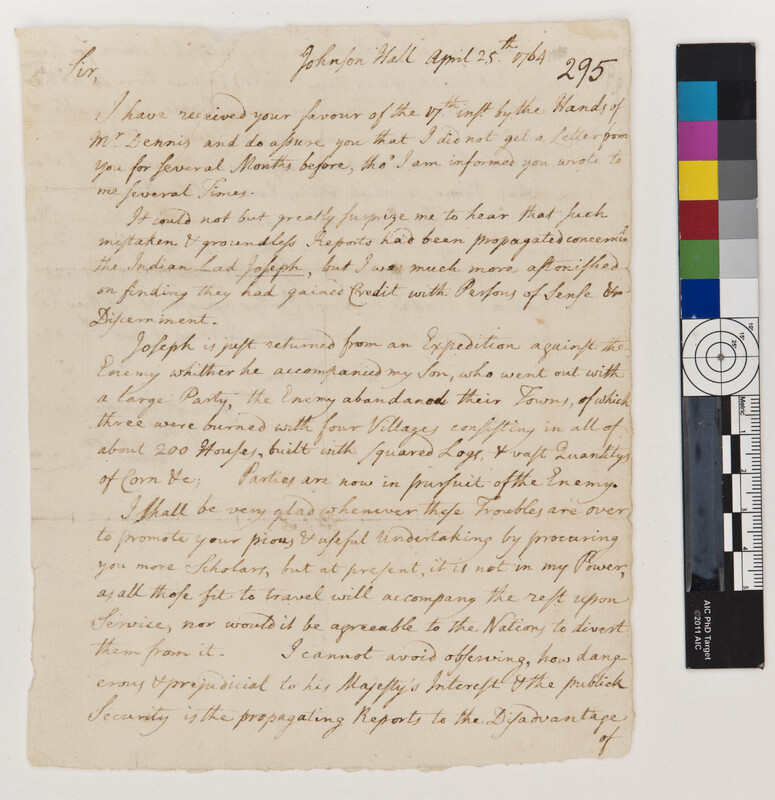 Johnson Hall April 25.th 1764.
295
Sir,
I have received your favour of the 17.th inst. by the Hands of
Mr. Dennis and do assure you that I did not get a Letter from
You for several Months before, tho' I am informed you wrote to
me several Times.
It could not but greatly surprize me to hear that such
mistaken & groundless Reports had been propagated concerng.
the Indian Lad Joseph, but I was much more astonished
on finding they had gained Credit with Persons of Sense &
Discernment.
Joseph is just returned from an Expedition against the
Enemy whither he accompanied my Son, who went out with
a large Party, the Enemy abandaned their Towns, of which
three were burned with four Villages consisting in all of
about 200 Houses, built with squared Logs, & vast Quantitys
of Corn &c; Parties are now in pursuit of the Enemy.
I shall be very glad whenever these Troubles are over
to promote your pious, & useful Undertaking by procuring
you more Scholars, but at present, it is not in my Power,
as all those fit to travel will accompany the rest upon
Service, nor would it be agreeable to the Nations to divert
them from it. I cannot avoid observing, how dang-
erous & prejudicial to his Majesty's Interest & the publick
Security is the propagating Reports to the Disadvantage
of
10°
15°
25°
Metric
1
2
3
4
5
AIC PhD Target
©2011 AIC